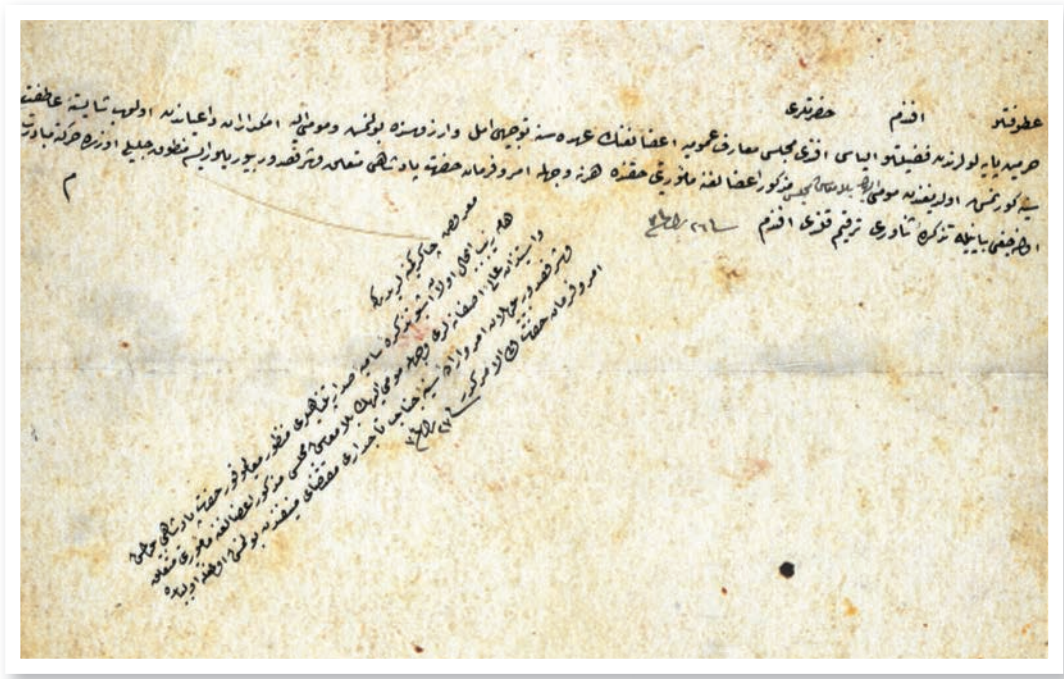 عطوفتلو افندم حضرتلری
حرمین پایه لولرندن فضیلتلو الیاس افندی مجلس معارف عمومیه اعضالغنک عهده سنه توجیهی امل وارزوسنده بولنمش ومومی الیه امکداران وداعیاندن اولوب شایستۀ عاطفت
سنیه کورنمش اولدیغندن مومی الیهک بلا معاش مجلس مذکور اعضالغنه مأموریتی حقنده هر نه وجهله امر وفرمان حضرت پادشاهی متعلق وشرفصدور بیوریلور ایسه منطوق جلیلی اوزره حرکته مبادرت
اولنه جغی بیانیله تذکرۀ ثناوری ترقیم قلندی افندم
م
معروض چاکر کمینه لریدرکه
هامه زیب ابجال اولان اشبو تذکرۀ سامیۀ آصفانه لری منظور معالی موفور حضرت پادشاهی بیورلمش
واستیذان عالی آصفانه لری وجهله مومی الیهک بلا معاش مجلس مذکور اعضالغنه مأموریتی متعلق
وشرفصدور بیوریلان امر وارادۀ سنیۀ جناب تاجداری مقتضای منیفندن بولنمش اولمغله اولبابده
امر وفرمان حضرت ولی الامرکدر